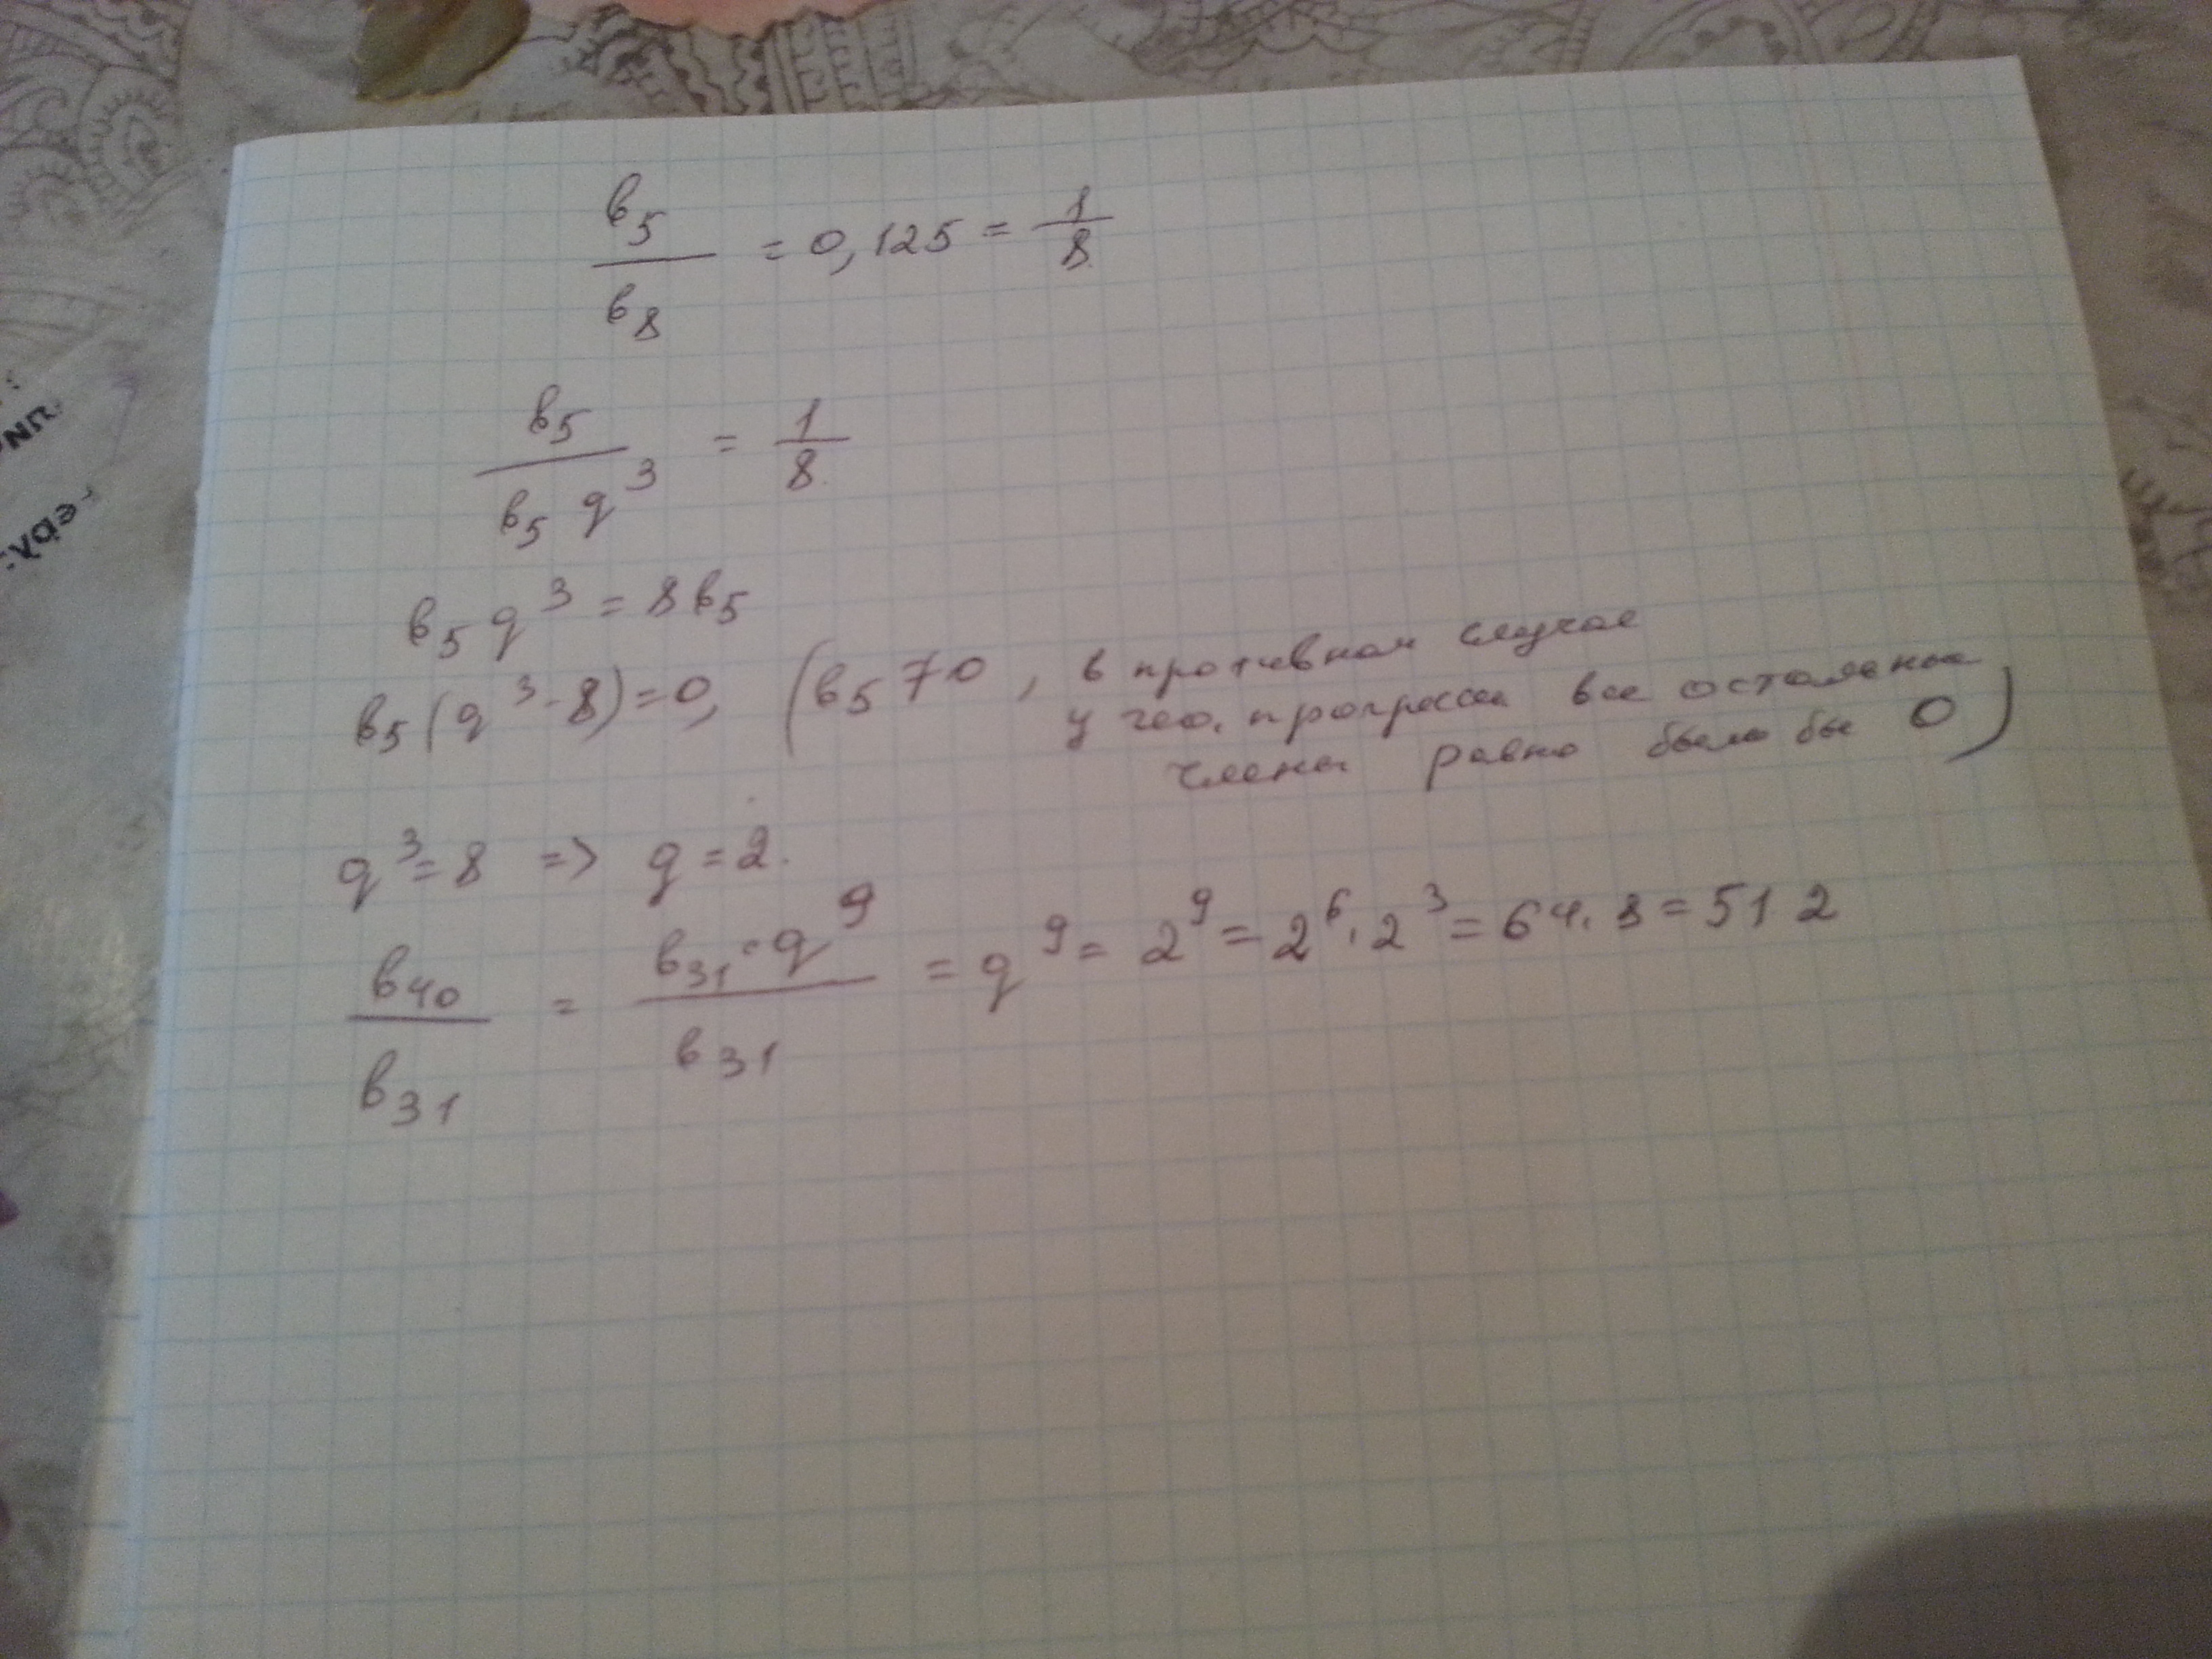 b₅/b₈ = 0,125 = 1/8
b₅/(b₅ q³) = 1/8
b₅ q³ = 8b₅
b₅(q³-8)=0, (b₅ ≠ 0, в противном случае
у гео. прогрессии все остальные
члены равно были бы 0)
q³=8 => q=2.
b₄₀/b₃₁ = (b₃₁·q⁹)/b₃₁ = q⁹ = 2⁹ = 2⁶·2³ = 64·8=512